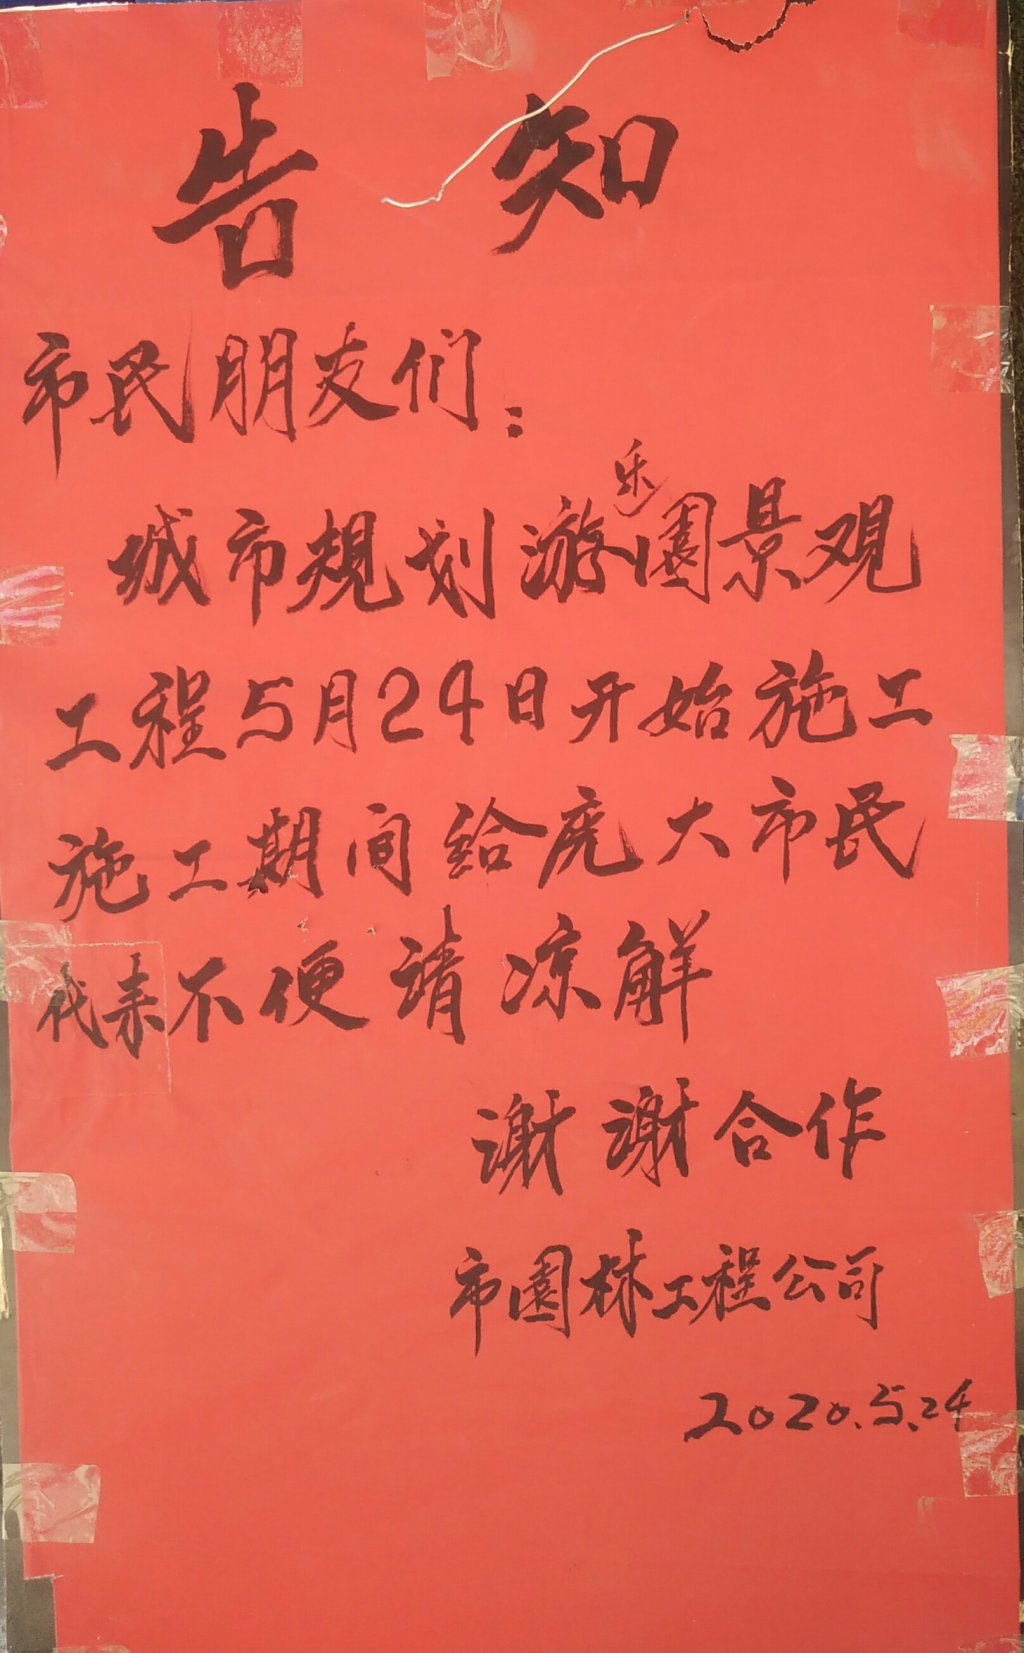 告知
市民朋友们：
城市規划游乐園景观
工程5月24日开始施工
施工期间给庞大市民
代来不便请凉解
谢谢合作
市園林工程公司
2020.5.24